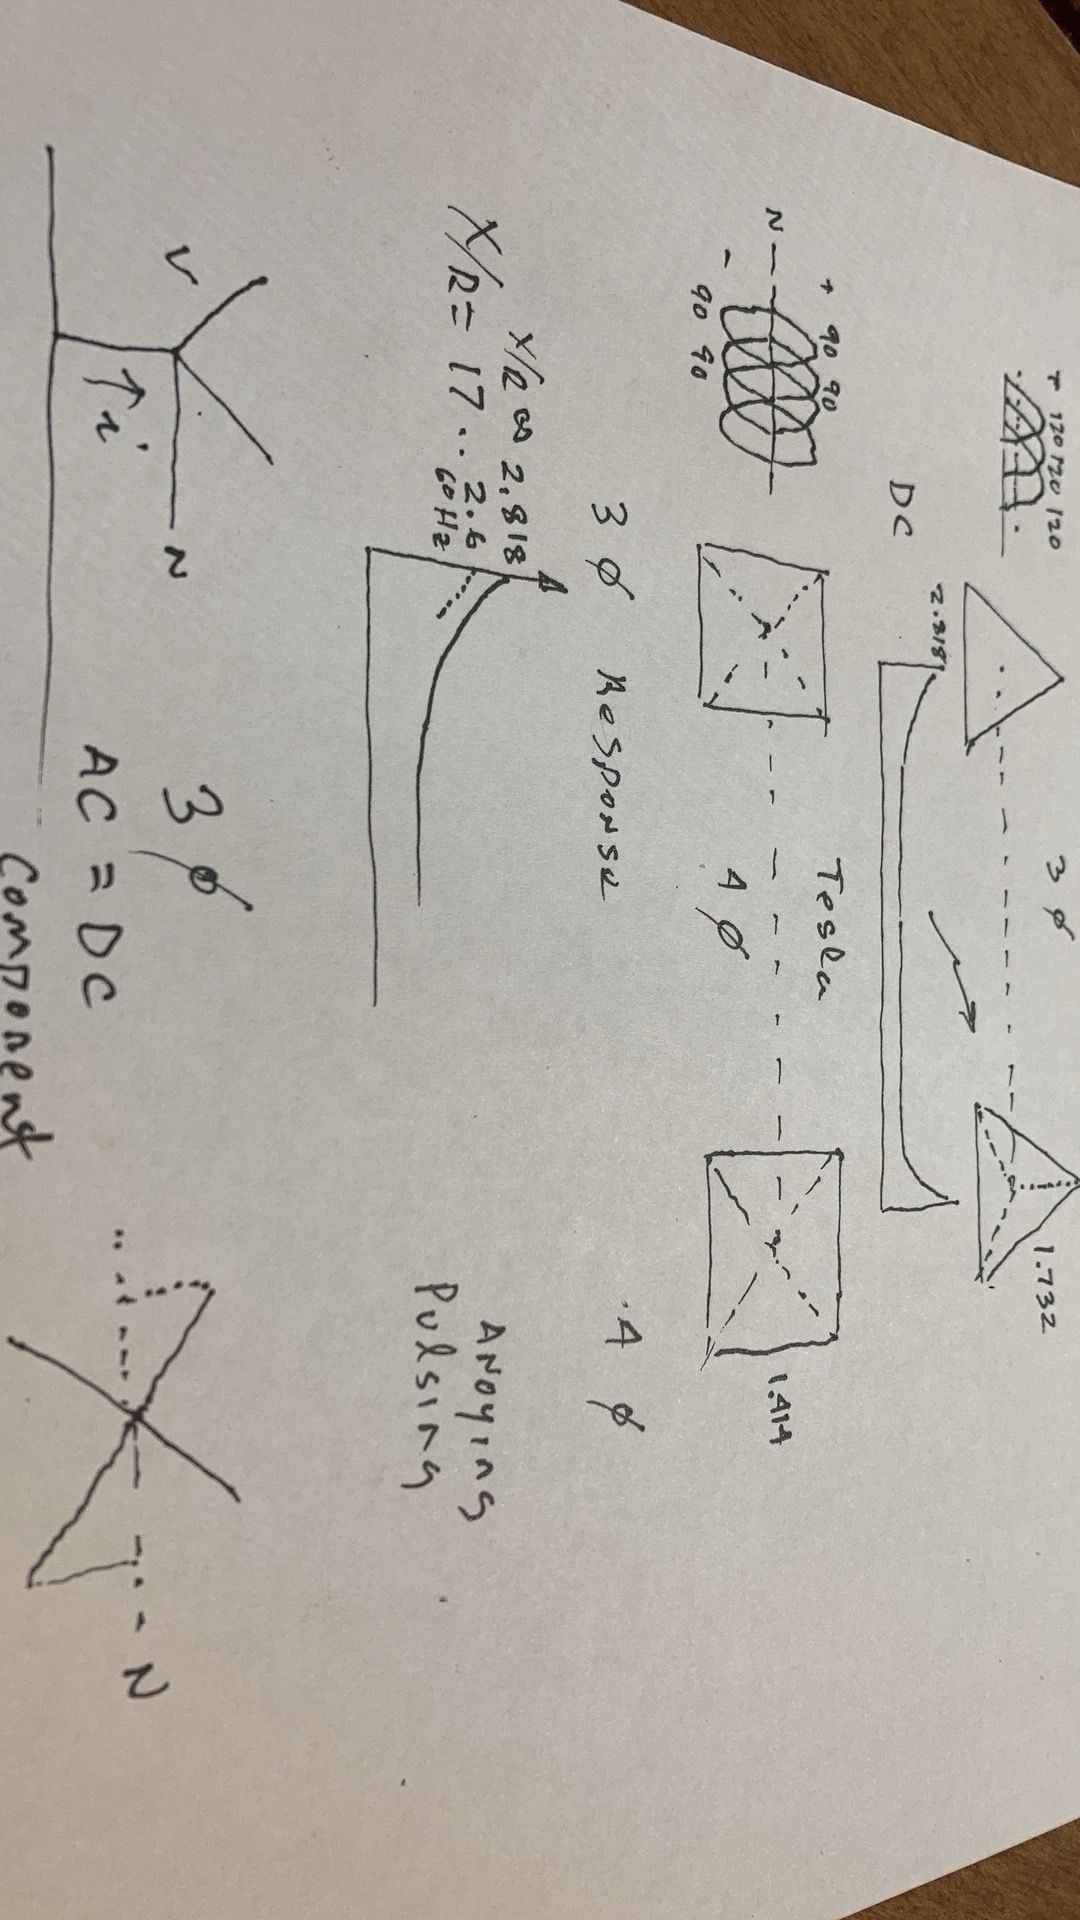 + 120 120 120
3 Ø
1.732
2.818
DC
+ 90 90
N
-
90 90
Tesla
4 Ø
1.414
3 Ø Response
4 Ø
X/R ∞ 2.818
X/R = 17 .. 2.6
60Hz
ANOYING
Pulsing
V
N
i
3 Ø
AC = DC
Component
N